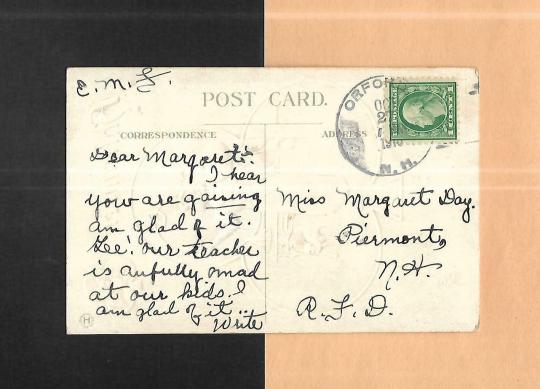 E. M. F.
POST CARD.
CORRESPONDENCE
ADDRESS
ORFO
N.H.
Dear Margaret:
I hear
you are gaining
am glad of it.
Gee! our teacher
is awfully mad
at our kids. I
am glad of it..
Write
Miss Margaret Day.
Piermont,
N.H.
R.F.D.
H